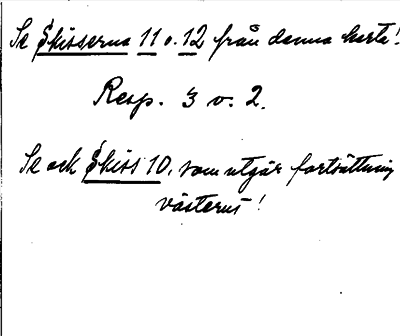 Se Skisserna 11 o. 12 från denna karta!
Resp. 3 o. 2.
Se ock Skiss 10, som utgår fortsättning
västerut!